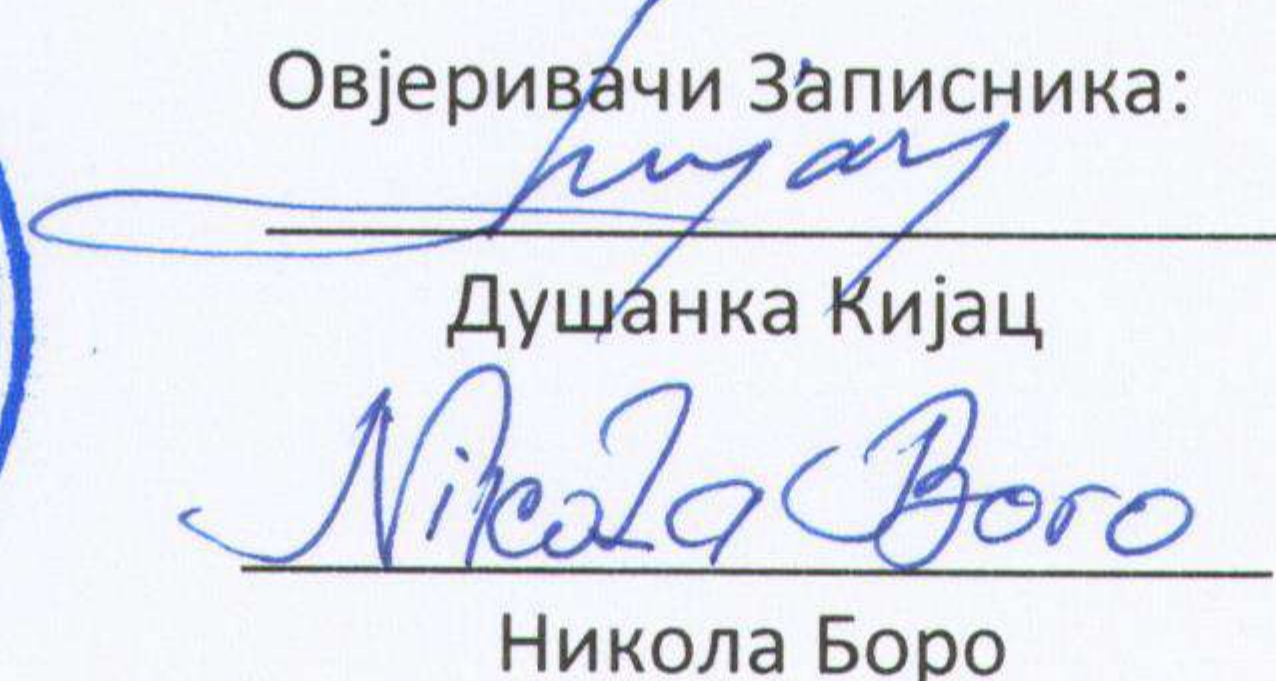 Овјеривачи Записника:
Душанка Кијац
Nikola Boro
Никола Боро